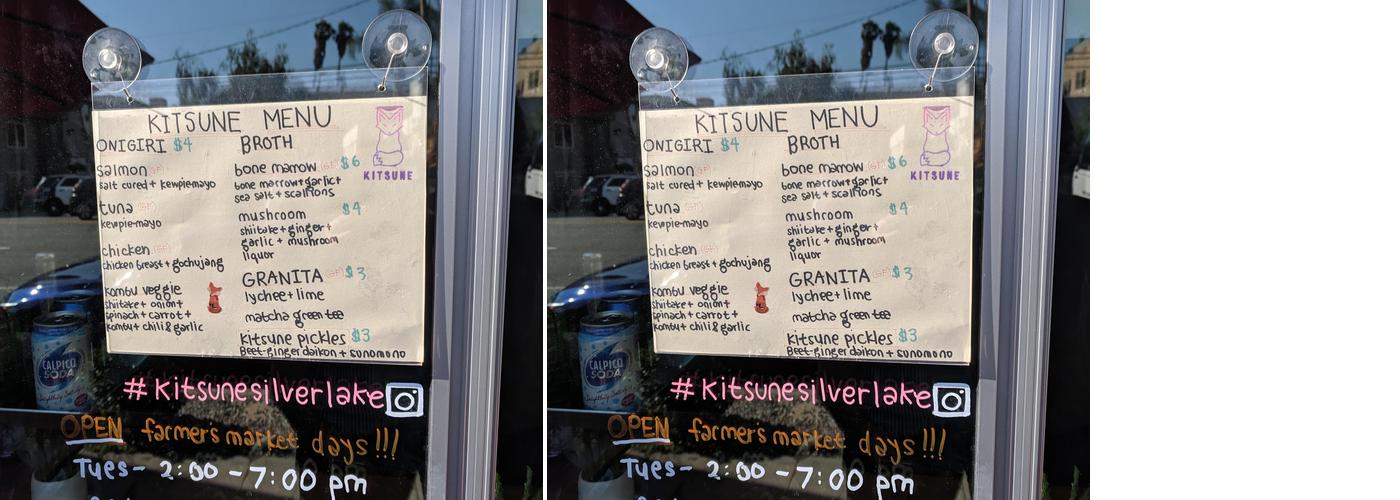 KITSUNE MENU
ONIGIRI $4
salmon (GF)
salt cured + kewpiemayo
tuna (GF)
kewpie-mayo
chicken (GF)
chicken breast + gochujang
kombu veggie
shiitake + onion +
spinach + carrot +
kombu + chili & garlic
BROTH
bone marrow (GF) $6
bone marrow + garlic +
sea salt + scallions
mushroom $4
shiitake + ginger +
garlic + mushroom
liquor
GRANITA (GF) $3
lychee + lime
matcha green tee
kitsune pickles $3
Beet-ginger daikon + sunomono
KITSUNE
# Kitsunesilverlake
CALPICO
SODA
OPEN farmer's market days!!!
Tues - 2:00 - 7:00 pm
KITSUNE MENU
ONIGIRI $4
salmon (GF)
salt cured + kewpiemayo
tuna (GF)
kewpie-mayo
chicken (GF)
chicken breast + gochujang
kombu veggie
shiitake + onion +
spinach + carrot +
kombu + chili & garlic
BROTH
bone marrow (GF) $6
bone marrow + garlic +
sea salt + scallions
mushroom $4
shiitake + ginger +
garlic + mushroom
liquor
GRANITA (GF) $3
lychee + lime
matcha green tee
kitsune pickles $3
Beet-ginger daikon + sunomono
KITSUNE
# Kitsunesilverlake
CALPICO
SODA
OPEN farmer's market days!!!
Tues - 2:00 - 7:00 pm